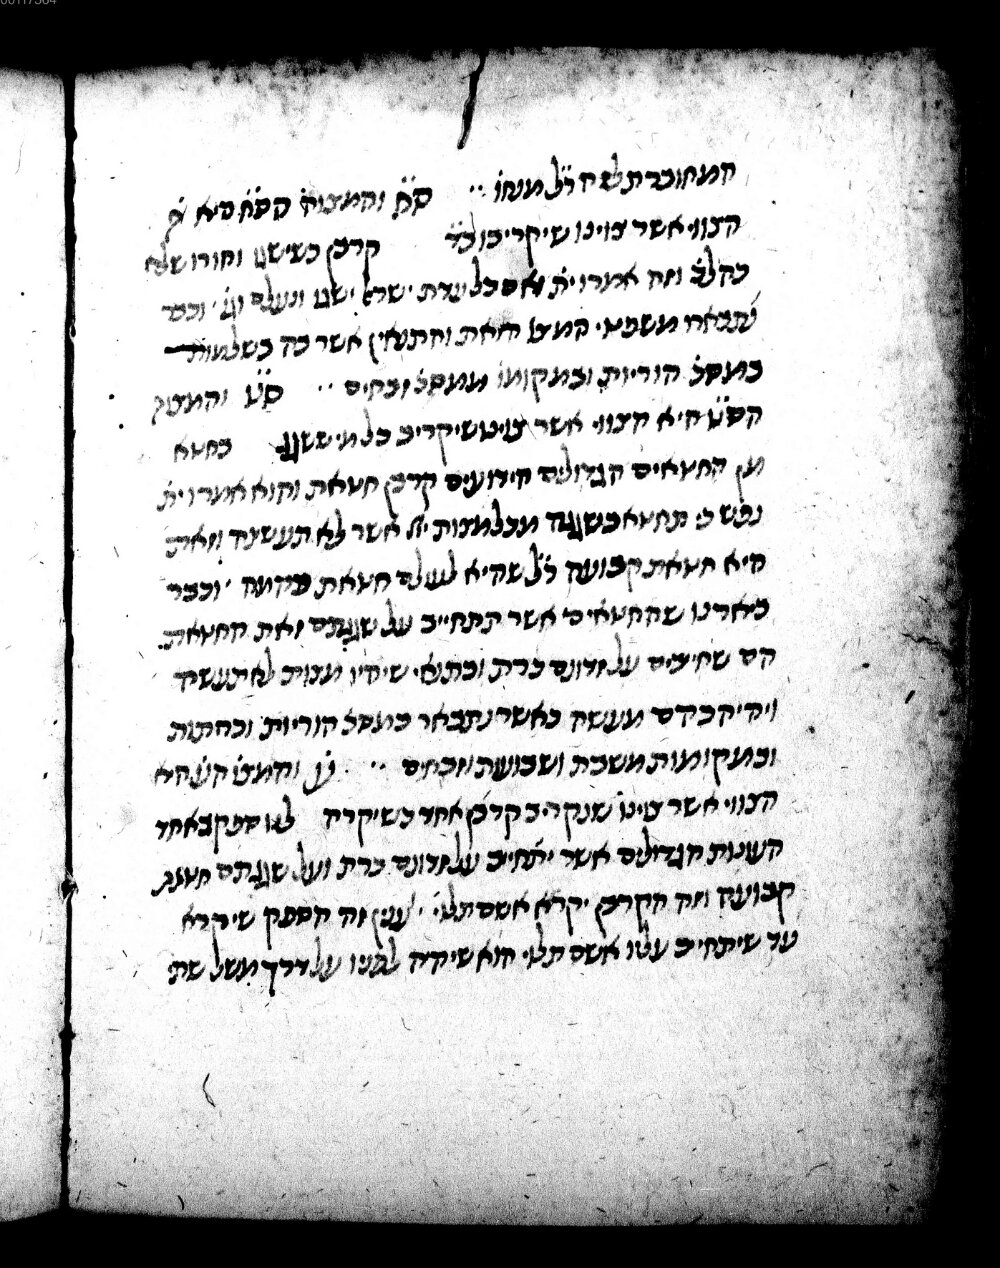 המחוברת לשח ר״ל מנחו׳ ׃ ס״ח והמצוה הס״ח היא
הצווי אשר צוינו שיקריבו ב״ד קרבן כשישגו ויורו שלא
כהלכ׳ וזה אמרו ית׳ ואם כל עדת ישראל ישגו ונעלם וגו׳ וכבר
נתבארו משפטי המצוה הזאת והתנאין אשר בה בשלמות
במסכ׳ הוריות ובמקומו׳ ממסכ׳ זבחים ׃ ס״ט והמצוה
הס״ט היא הצווי אשר צוינו שיקריב כל מי ששגג בחטא
מן החטאים הגדולים הידועים קרבן חטאת והוא אמרו ית׳
נפש כי תחטא בשגגה מכל מצות יי׳ אשר לא תעשינה וזאת
היא חטאת קבועה ר״ל שהיא לעולם חטאת בהמה וכבר
ביארנו שהחטאים אשר תתחייב על שגגתם זאת החטאת
הם שחייבים על זדונם כרת ובתנאי שיהיו מצות לא תעשה
ויהיה בהם מעשה כאשר נתבאר במסכ׳ הוריות וכריתות
ובמקומות משבת ושבועות וזבחים ׃ ע׳ והמצו׳ הע׳ היא
הצווי אשר צוינו שנקריב קרבן אחד כשיקרה לנו ספק באחד
העונות הגדולים אשר יתחייב על זדונם כרת ועל שגגתם חטאת
קבועה וזה הקרבן יקרא אשם תלוי וענין זה הספק שיקרא
עד שיתחייב עליו אשם תלוי הוא שיהיה לפניו על דרך משל שתי